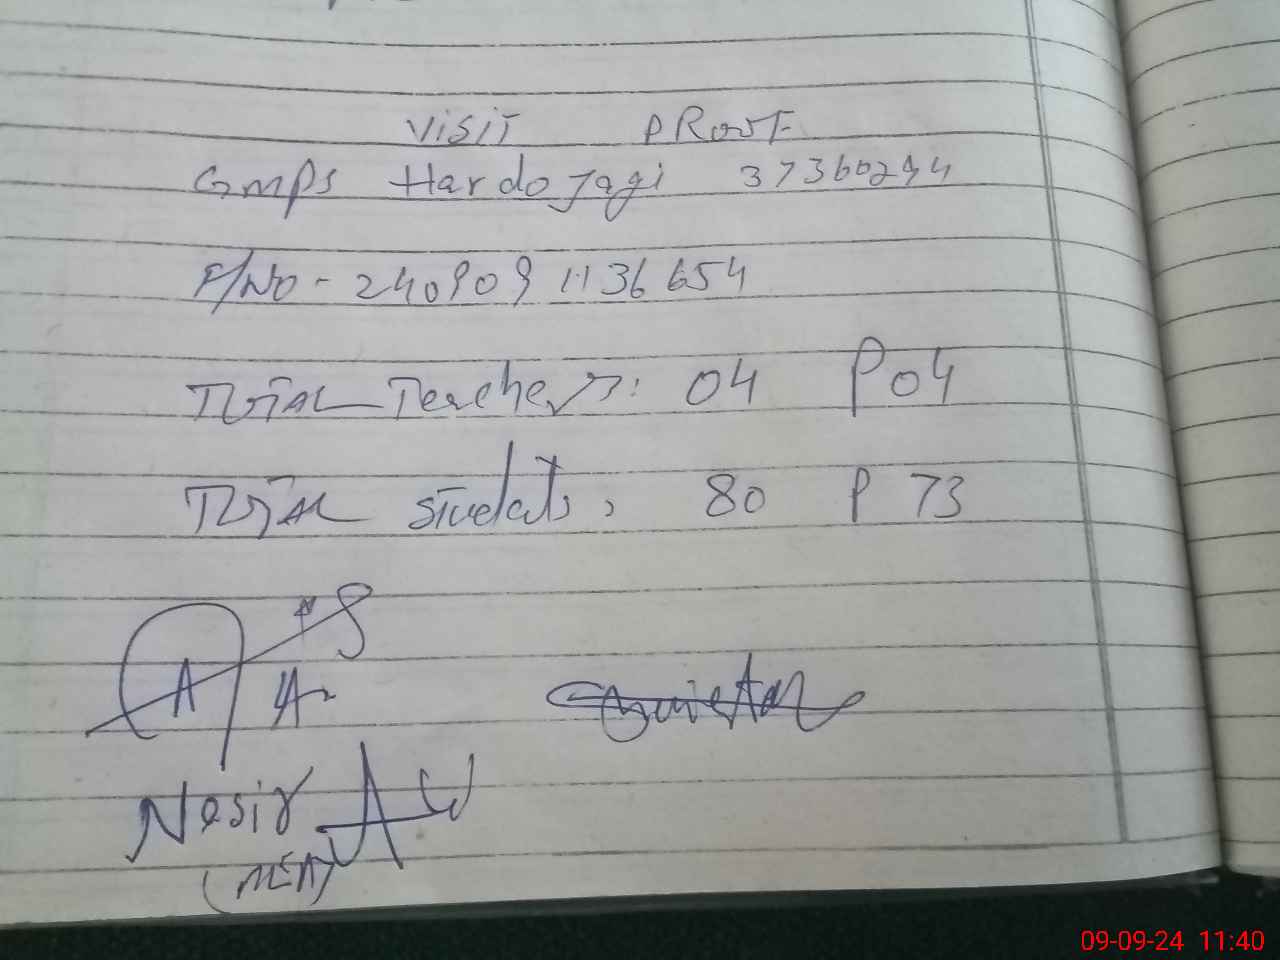 VISIT PROOF
GMPS Hardo Jagi 37360294
F/No - 2409091136654
Total Teachers: 04 P 04
Total Students: 80 P 73
Nasir
(MEA)
09-09-24 11:40